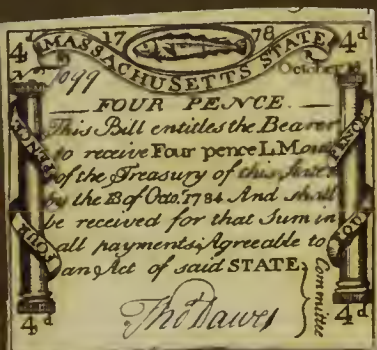 4d 17 78 4d
MASSACHUSETTS STATE
1099 October
FOUR PENCE
This Bill entitles the Bearer
to receive Four pence L.Mon
of the Treasury of this State
by the 18 of Octo. 1784 And shall
be received for that Sum in
all payments Agreeable to
an Act of said STATE
PENCE
FOUR
PENCE
FOUR
Committee
Tho Dawes
4d 4d